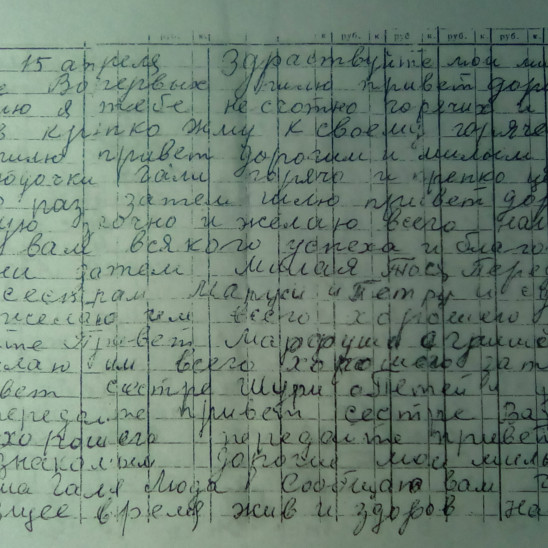 руб. к. к руб. к. руб к. руб. к. руб.
15 апреля Здраствуйте мои ми
Во первых шлю привет доро
лю я тебе несчотно горячих и
крепко жму к своему горяче
шлю привет дорогим и милым
Гали горячо и крепко це
раз затем шлю привет дор
и желаю всего наи
вам всякого успеха и благо
затем милая Тося Пере
сестрам Маруси и Петру и
желаю им всего хорошего
те Привет Марфуше
лаю им всего хорошего зат
вет сестре Шури детей и
передайте привет сестре За
хорошего передайте привет
знакомым дорогие мои милы
Галя Люда Сообщаю вам
щее время жив и здоров на